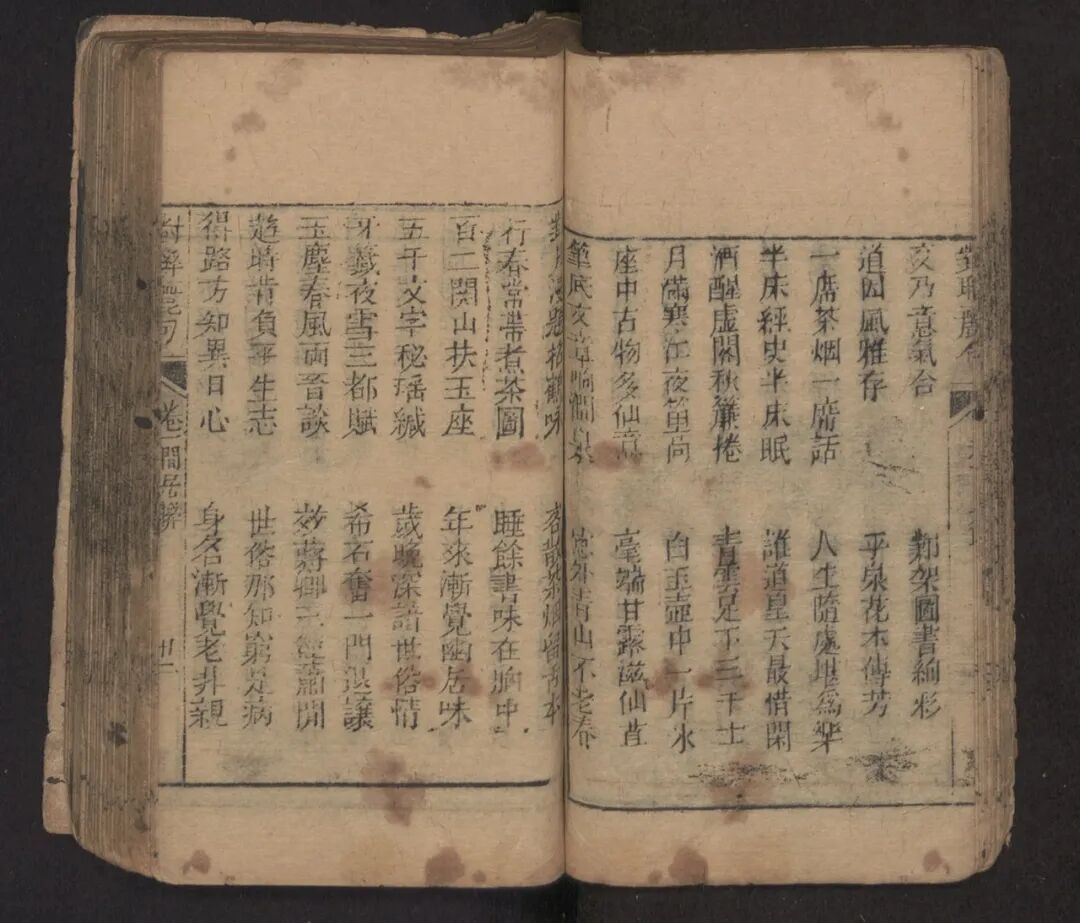 對聯
交乃意氣合 鄴架圖書絢彩
道因風雅存 平泉花木傳芳
一席茶烟一席話 人生隨處堪爲樂
半床經史半床眠 誰道皇天最惜閑
酒醒虛閣秋簾捲 青雲足下三千士
月滿寒江夜笛 白玉壺中一片氷
座中古物多仙意 毫端甘露滋仙
筆底文章 窓外青山不老春
對月 客散茶烟留
行春常帶煮茶圖 睡餘書味在胸中
百二関山扶玉座 年來漸覺幽居味
五千文字秘瑶緘 歲晚深諳世俗情
牙籤夜雪三都賦 希石奮一門退讓
玉塵春風両音談 效蔣卿三徑蕭閒
遊時肯負平生志 世俗那知窮是病
得路方知異日心 身名漸覺老非親
對聯 句 卷一 閒居聯 廿二